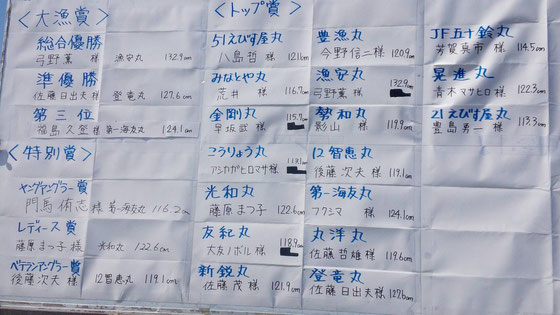 ＜大漁賞＞
総合優勝
弓野薫 漁安丸 132.9cm
準優勝
佐藤日出夫様 登竜丸 127.6cm
第三位
福島久登様 第一海友丸 124.1cm
＜特別賞＞
ヤングアングラー賞
門馬侑志様 第一海友丸 116.2cm
レディース賞
藤原まつ子様 光和丸 122.6cm
ベテランアングラー賞
後藤次夫様 12智恵丸 119.1cm
＜トップ賞＞
51えびす屋丸
八島哲様 121.1cm
みなとや丸
荒井様 116.7cm
金剛丸 115.9cm
早坂誠様
こうりょう丸
アシカガヒロマサ様 119.1cm
光和丸
藤原まつ子 122.6cm
友紀丸 118.9cm
大友ノボル様
新鋭丸
佐藤茂様 121.9cm
豊漁丸
今野信二様 120.9cm
漁安丸 132.9cm
弓野薫様
勢和丸
影山様 119.9cm
12智恵丸
後藤次夫様 119.1cm
第一海友丸
フクシマ様 124.1cm
丸洋丸
佐藤哲雄様 119.6cm
登竜丸
佐藤日出夫様 127.6cm
JF五十鈴丸
芳賀真市様 114.5cm
昇進丸
青木マサヒロ様 122.3cm
21えびす屋丸
豊島勇一様 113.3cm